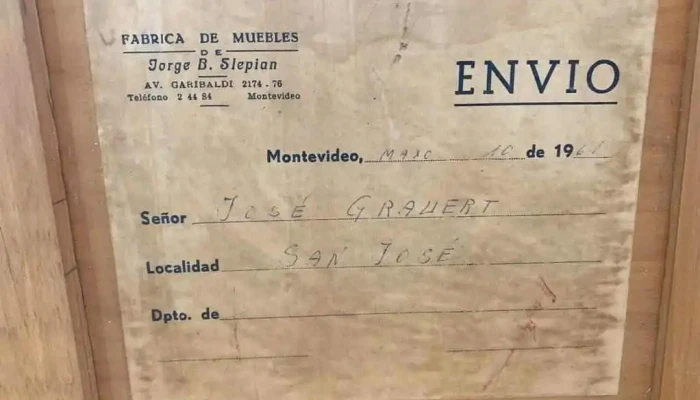 FABRICA DE MUEBLES
DE
Jorge B. Slepian
AV. GARIBALDI 2174 - 76
Teléfono 2 44 84 Montevideo
ENVIO
Montevideo, MAYO 10 de 196
Señor JOSÉ GRAUERT
Localidad SAN JOSÉ
Dpto. de